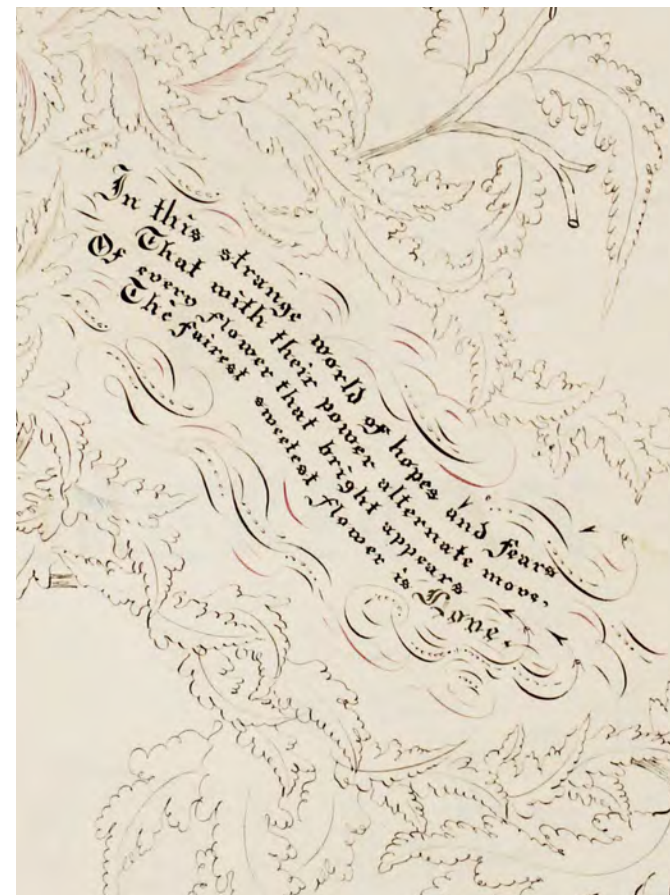 In this strange world of hopes and fears
That with their power alternate move,
Of every flower that bright appears
The fairest sweetest flower is Love.